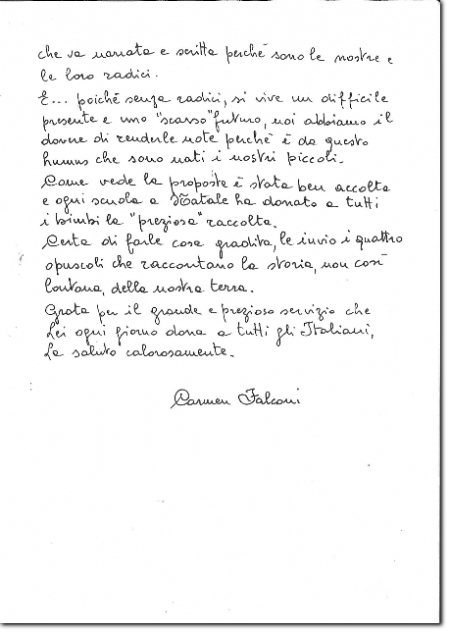 che va narrata e scritta perchè sono le nostre e
le loro radici.
E... poichè senza radici, si vive un difficile
presente e uno "scarso" futuro, noi abbiamo il
dovere di renderle note perchè è da questo
humus che sono nati i nostri piccoli.
Come vede la proposta è stata ben accolta
e ogni scuola a Natale ha donato a tutti
i bimbi la "preziosa" raccolta.
Certa di farle cosa gradita, le invio i quattro
opuscoli che raccontano la storia, non così
lontana, della nostra terra.
Grata per il grande e prezioso servizio che
Lei ogni giorno dona a tutti gli Italiani,
La saluto calorosamente.
Carmen Falconi